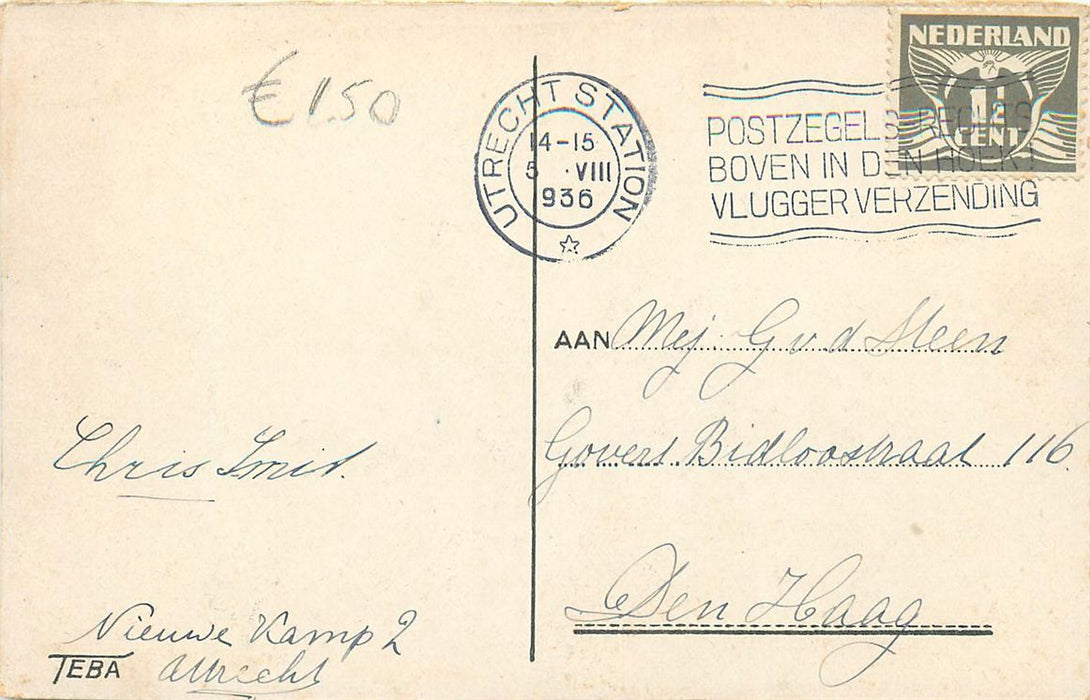 € 1.50
UTRECHT STATION
14-15
5 .VIII
936
POSTZEGELS RECHTS
BOVEN IN DEN HOEK!
VLUGGER VERZENDING
NEDERLAND
1½
CENT
AAN Mej. G v d Steen
Govert Bidloostraat 116
Den Haag
Chris Smit.
Nieuwe Kamp 2
Utrecht
TEBA